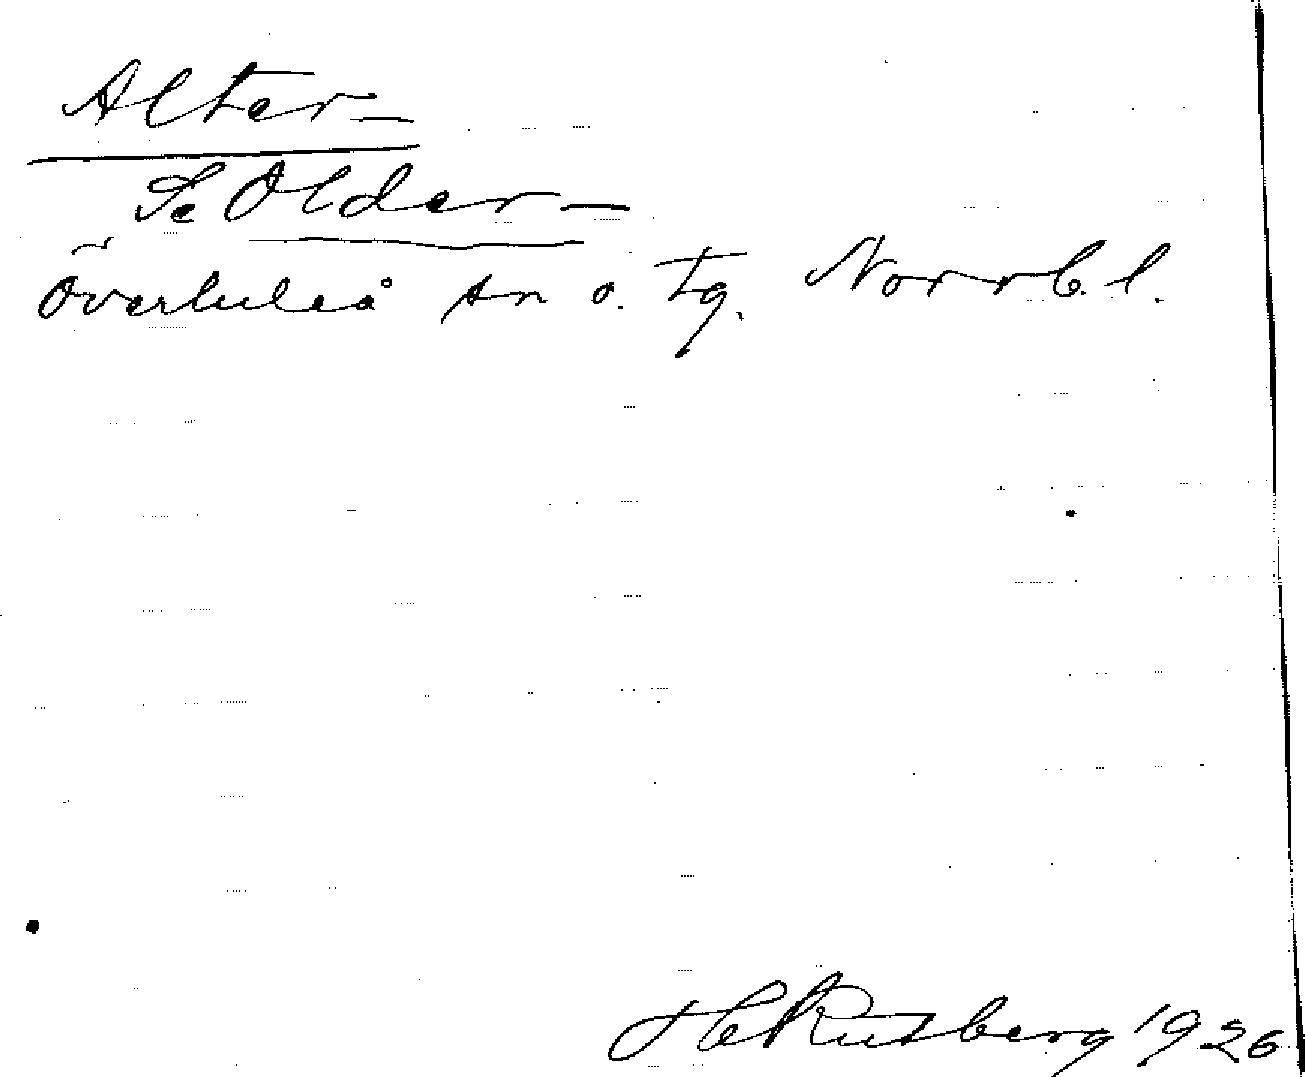 Alter-
Se Older-
Överluleå sn o. tg. Norrb. l.
H C Rutberg 1926